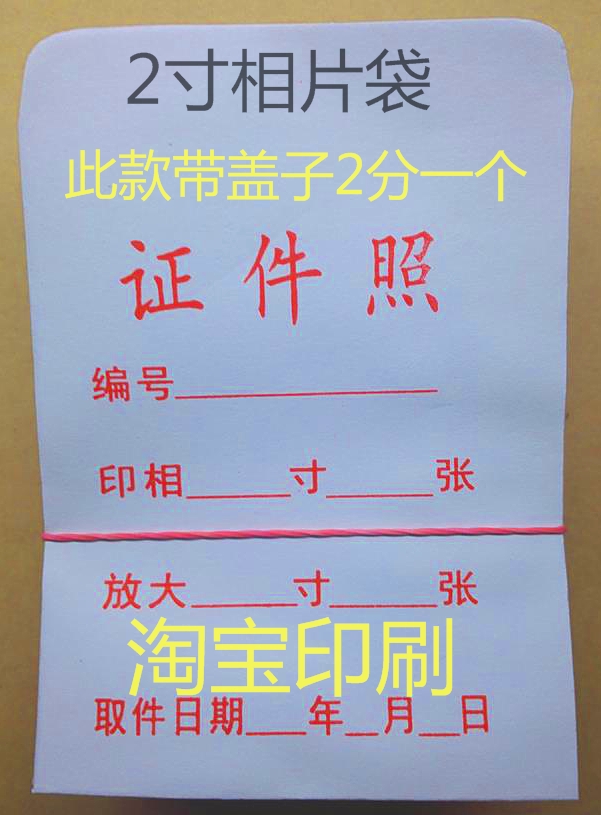 2寸相片袋
此款带盖子2分一个
证件照
编号____________
印相_____寸_____张
放大_____寸_____张
淘宝印刷
取件日期___年__月__日